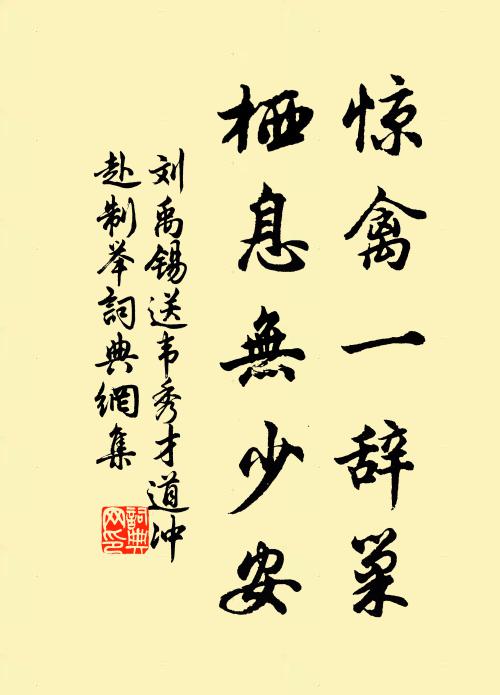 惊禽一辞巢
栖息無少安
刘禹锡送韦秀才道冲
赴制举詞典網集
詞典网印